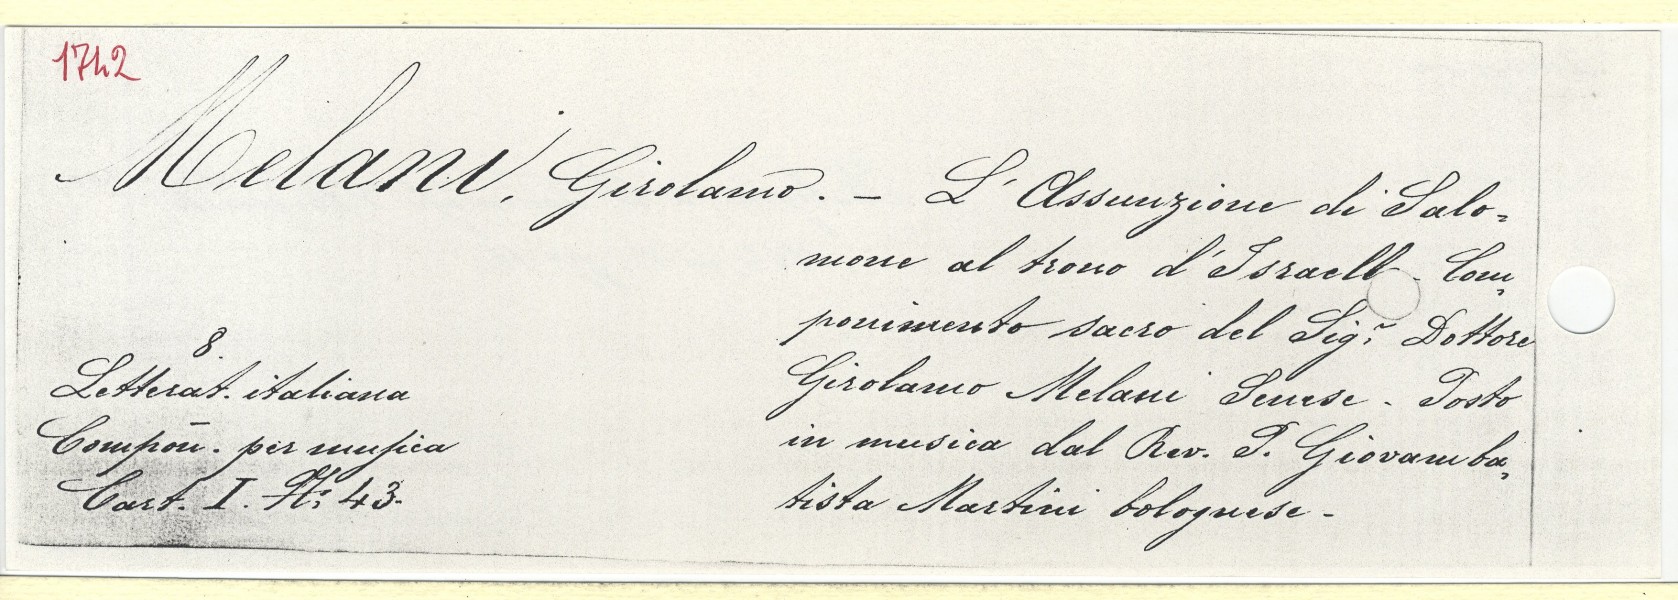 1742
Melani, Girolamo. — L'Assunzione di Salo-
mone al trono d'Israell - Com-
ponimento sacro del Sigr. Dottore
Girolamo Melani Senese - Posto
in musica dal Rev. P. Giovamba-
tista Martini bolognese -
8.
Letterat. italiana
Compōn. per musica
Cart. I. No. 43.